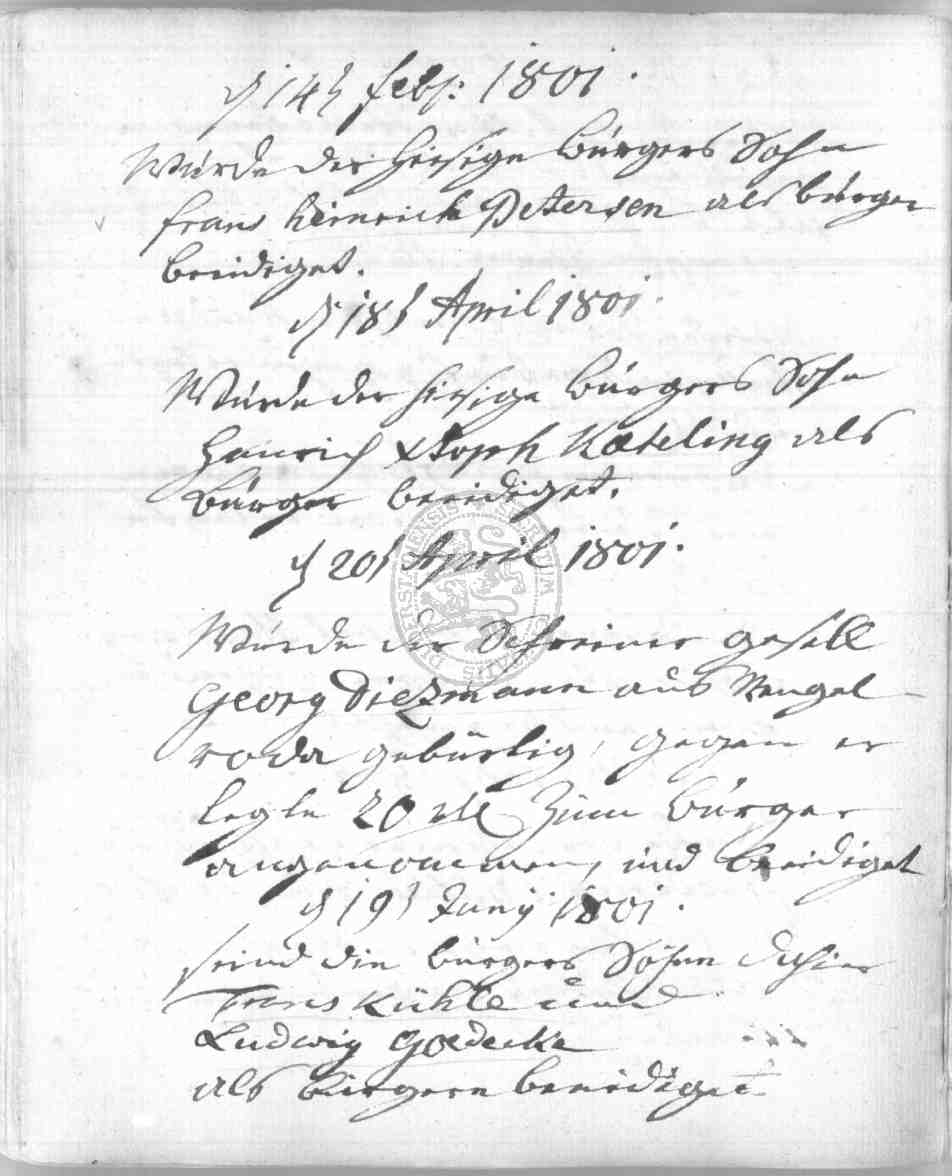 d 14t febr: 1801.
Wurde der hiesige Bürgers Sohn
frans heinrich Petersen als bürger
beeidiget.
d 18t April 1801.
Wurde der hiesige Bürgers Sohn
Henrich Xtoph Kokeling als
Bürger beeidiget.
d 20t April 1801.
Wurde der Schreiner gesell
Georg Dietzmann aus Wengel
roda gebürtig, gegen er
legte 20 rthl zum Bürger
angenommen, und beeidiget
d 19t Junÿ 1801.
seind die bürgers Söhne dahier
Frans Kühle und
Ludwig Goedecke
als Bürgern beeidiget